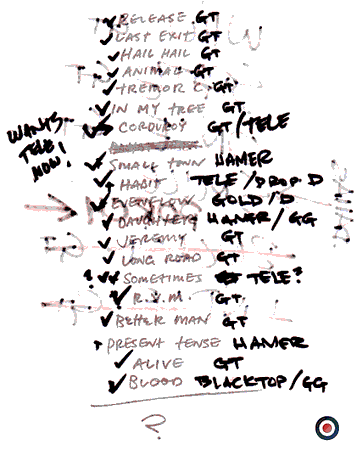 RELEASE GT
LAST EXIT GT
HAIL HAIL GT
ANIMAL GT
TREMOR C. GT
IN MY TREE GT
WANTS TELE! NOW!
CORDUROY GT/TELE
SMALL TOWN HAMER
HABIT TELE/DROP D
EVENFLOW GOLD/D
DAUGHTER HAMER/GG
JEREMY GT
LONG ROAD GT
? SOMETIMES TELE?
R.V.M. GT
BETTER MAN GT
PRESENT TENSE HAMER
ALIVE GT
BLOOD BLACKTOP/GG
?